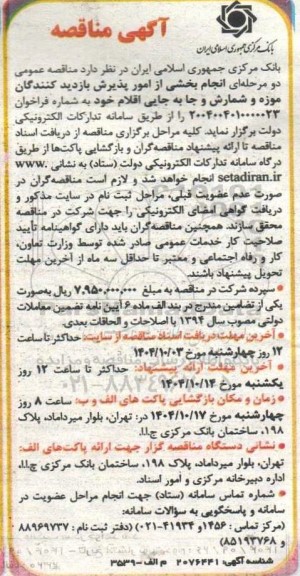 آگهی مناقصه
بانک مرکزی جمهوری اسلامی ایران
بانک مرکزی جمهوری اسلامی ایران در نظر دارد مناقصه عمومی
دو مرحله‌ای انجام بخشی از امور پذیرش بازدید کنندگان
موزه و شمارش و جا به جایی اقلام خود به شماره فراخوان
۲۰۰۴۰۰۴۰۱۰۰۰۰۰۲۳ را از طریق سامانه تدارکات الکترونیکی
دولت برگزار نماید. کلیه مراحل برگزاری مناقصه از دریافت اسناد
مناقصه تا ارائه پیشنهاد مناقصه‌گران و بازگشایی پاکت‌ها از طریق
درگاه سامانه تدارکات الکترونیکی دولت (ستاد) به نشانی www.
setadiran.ir انجام خواهد شد و لازم است مناقصه‌گران در
صورت عدم عضویت قبلی، مراحل ثبت نام در سایت مذکور و
دریافت گواهی امضای الکترونیکی را جهت شرکت در مناقصه
محقق سازند. همچنین مناقصه‌گران باید دارای گواهینامه تأیید
صلاحیت کار خدمات عمومی صادر شده توسط وزارت تعاون،
کار و رفاه اجتماعی و معتبر تا حداقل سه ماه از آخرین مهلت
تحویل پیشنهاد باشند.
• سپرده شرکت در مناقصه به مبلغ ۷.۹۵۰.۰۰۰.۰۰۰ ریال به‌صورت
یکی از تضامین مندرج در بند الف ماده ۶ آیین نامه تضمین معاملات
دولتی مصوب سال ۱۳۹۴ با اصلاحات و الحاقات بعدی.
• آخرین مهلت دریافت اسناد مناقصه از سایت: حداکثر تا ساعت
۱۲ روز چهارشنبه مورخ ۱۴۰۴/۱۰/۰۳
• آخرین مهلت ارائه پیشنهاد: حداکثر تا ساعت ۱۲ روز
یکشنبه مورخ ۱۴۰۴/۱۰/۱۴
• زمان و مکان بازگشایی پاکت های الف و ب: ساعت ۸ روز
چهارشنبه مورخ ۱۴۰۴/۱۰/۱۷ در: تهران، بلوار میرداماد، پلاک
۱۹۸، ساختمان بانک مرکزی ج.ا.ا.
• نشانی دستگاه مناقصه گزار جهت ارائه پاکت‌های الف:
تهران، بلوار میرداماد، پلاک ۱۹۸، ساختمان بانک مرکزی ج.ا.ا.
اداره دبیرخانه مرکزی و امور اسناد.
• شماره تماس سامانه (ستاد) جهت انجام مراحل عضویت در
سامانه و پاسخگویی به سؤالات سامانه:
(مرکز تماس: ۱۴۵۶ و ۴۱۹۳۴-۰۲۱) (دفتر ثبت نام: ۸۸۹۶۹۷۳۷
و ۸۵۱۹۳۷۶۸)
شناسه آگهی: ۲۰۷۶۴۴۱ م الف-۳۵۳۹